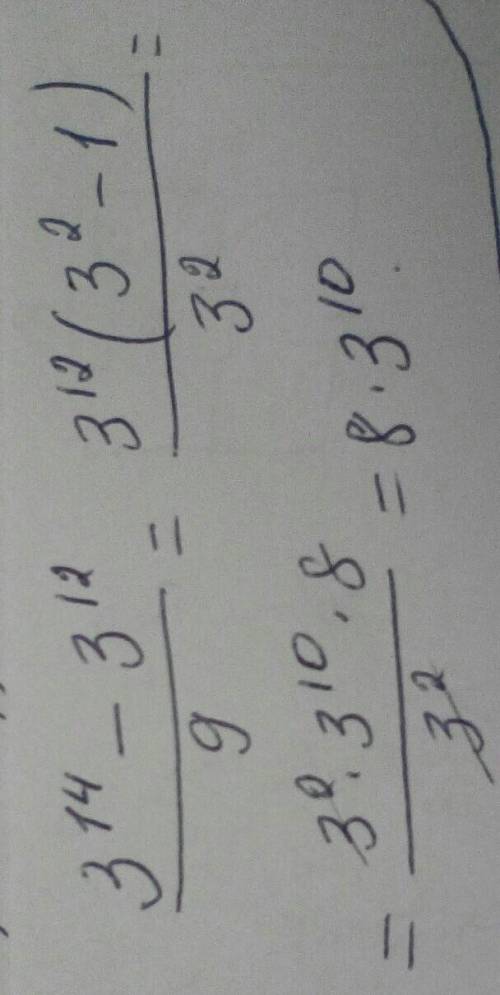 \frac{3^{14} - 3^{12}}{9} = \frac{3^{12}(3^2 - 1)}{3^2} =
= \frac{3^2 \cdot 3^{10} \cdot 8}{3^2} = 8 \cdot 3^{10}.